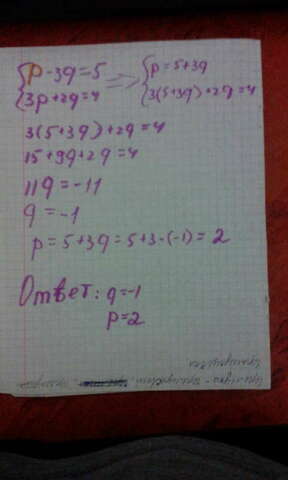 {p-3q=5 => {p=5+3q
{3p+2q=4 {3(5+3q)+2q=4
3(5+3q)+2q=4
15+9q+2q=4
11q=-11
q=-1
p=5+3q=5+3·(-1)=2
Ответ: q=-1
p=2